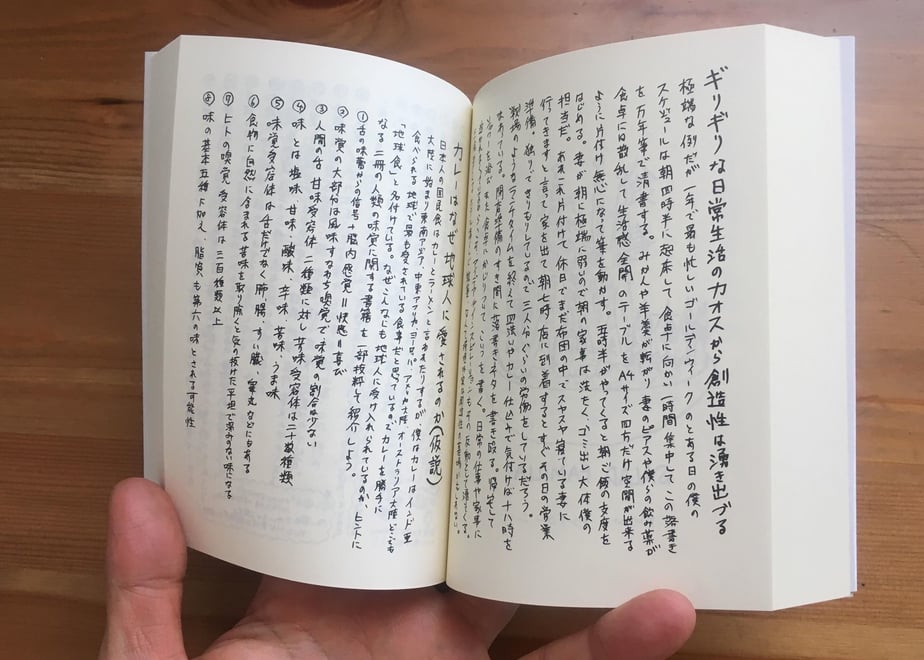 ギリギリな日常生活のカオスから創造性は湧き出づる
極端な例だが一年で最も忙しいゴールデンウィークのとある日の僕の
スケジュールは朝四時半に起床して、食卓に向かい一時間集中してこの落書き
を万年筆で清書する。みかんや羊羹が転がり妻のピアスや僕らの飲み薬が
食卓には散乱して生活感全開のテーブルをA4サイズ四方だけ空間が出来る
ように片付け無心になって筆を動かす。五時半がやってくると朝ご飯の支度を
はじめる。妻が朝に極端に弱いので朝の家事は洗たく、ゴミ出し大体僕の
担当だ。あれこれ片付けて休日でまだ布団の中でスヤスヤ寝ている妻に
行ってきますと言って家を出て朝七時店に到着するとすぐその日の営業
準備。独りできりもりしているので三人分ぐらいの労働をしているだろう。
戦場のようなランチタイムを終えて皿洗いやカレー仕込みで気付けば十八時を
カレーはなぜ地球人に愛されるのか(仮説)
日本人の国民食はカレーとラーメンと言われたりするが、僕はカレーはインド亜
大陸に始まり東南アジア、中東アフリカ、ヨーロッパ、アメリカ大陸、オーストラリア大陸どこでも
食べられる地球で最も愛されている食事だと思っているのでカレーを勝手に
「地球食」と名付けている。なぜこんなにも地球人に受け入れられているのか、ヒントに
なる二冊の人類の味覚に関する書籍を一部抜粋して紹介しよう。
①舌の味蕾からの信号+脳内感覚=快感=喜び
②味覚の大部分は風味すなわち嗅覚で味覚の割合は少ない
③人間の舌 甘味受容体二種類に対し苦味受容体は二十数種類
④味とは塩味、甘味、酸味、辛味、苦味、うま味
⑤味覚受容体は舌だけでなく肺、腸、すい臓、睾丸などにもある
⑥食物に自然に含まれる苦味を取り除くと気の抜けた平坦で深みのない味になる
⑦ヒトの嗅覚受容体は三百種類以上
⑧味の基本五種に加え、脂質も第六の味とされる可能性